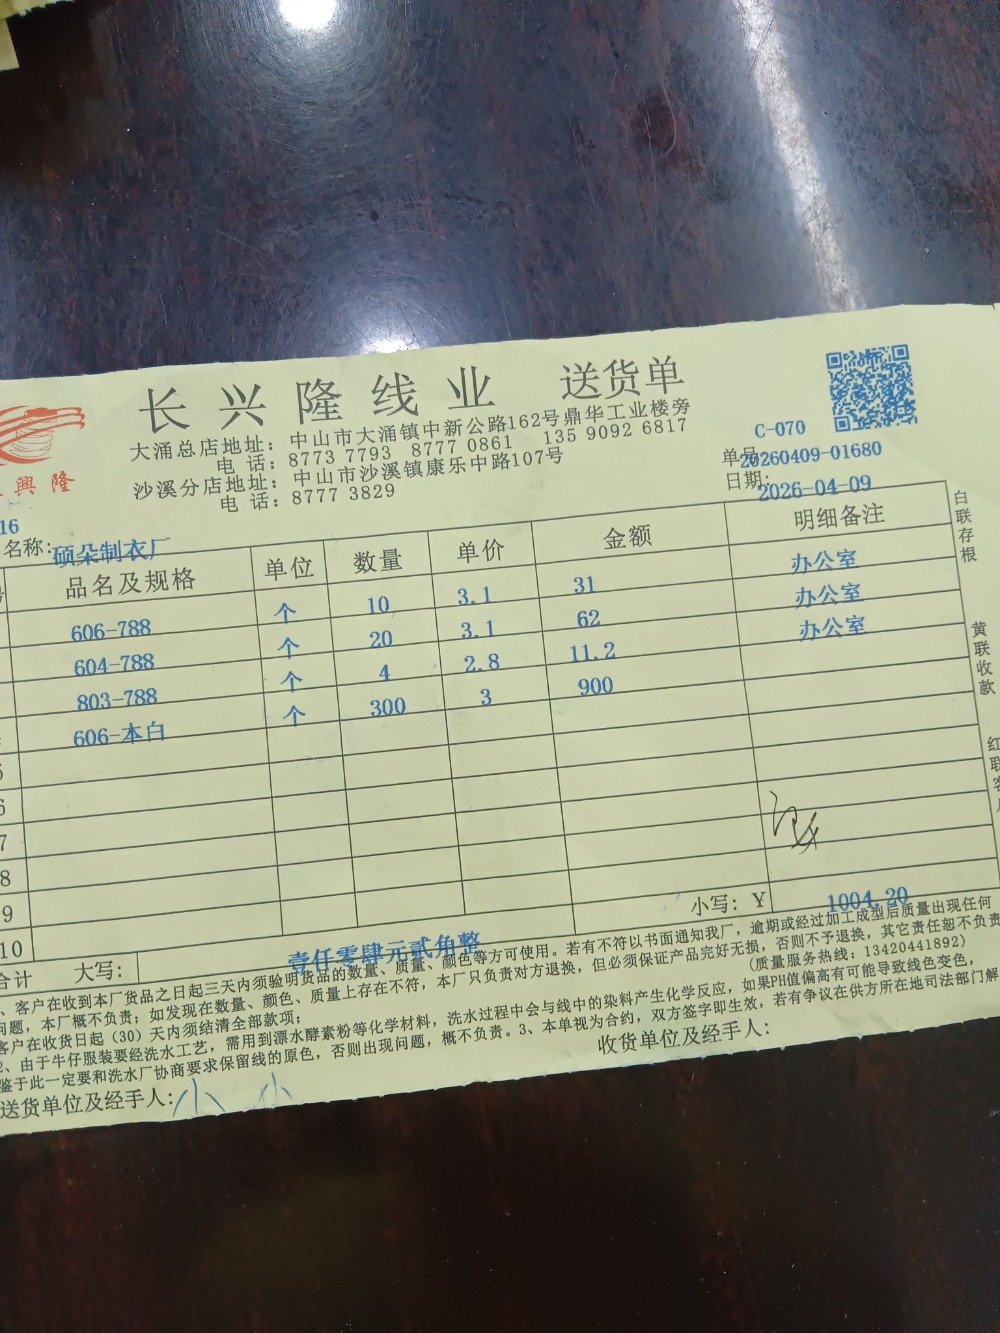 长兴隆线业 送货单
大涌总店地址：中山市大涌镇中新公路162号鼎华工业楼旁
电 话：8773 7793 8777 0861 135 9092 6817
沙溪分店地址：中山市沙溪镇康乐中路107号
电 话：8777 3829
興隆
C-070
单号:20260409-01680
日期:2026-04-09
16
名称：硕朵制衣厂
品名及规格 单位 数量 单价 金额 明细备注
606-788 个 10 3.1 31 办公室
604-788 个 20 3.1 62 办公室
803-788 个 4 2.8 11.2 办公室
606-本白 个 300 3 900
5
6
7
8
9
10
小写：￥ 1004.20
合计 大写：壹仟零肆元贰角整
白联存根
黄联收款
红联客
、客户在收到本厂货品之日起三天内须验明货品的数量、质量、颜色等方可使用。若有不符以书面通知我厂，逾期或经过加工成型后质量出现任何
问题，本厂概不负责；如发现在数量、颜色、质量上存在不符，本厂只负责对方退换，但必须保证产品完好无损，否则不予退换，其它责任恕不负责
客户在收货日起（30）天内须结清全部款项； （质量服务热线：13420441892）
2、由于牛仔服装要经洗水工艺，需用到漂水酵素粉等化学材料，洗水过程中会与线中的染料产生化学反应，如果PH值偏高有可能导致线色变色，
鉴于此一定要和洗水厂协商要求保留线的原色，否则出现问题，概不负责。3、本单视为合约，双方签字即生效，若有争议在供方所在地司法部门解
送货单位及经手人：小 小
收货单位及经手人：